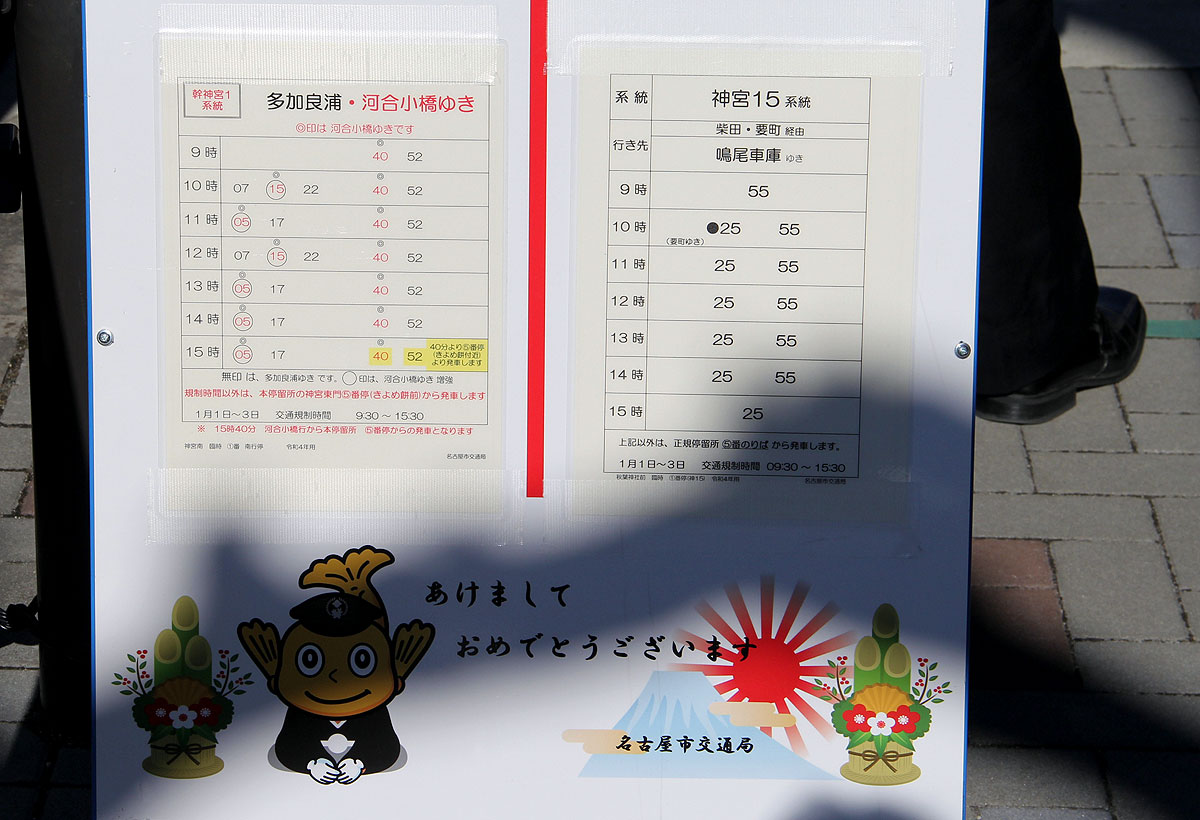 幹神宮1
系統
多加良浦・河合小橋ゆき
◎印は 河合小橋ゆきです
9時 ◎40 52
10時 07 ◎15 22 ◎40 52
11時 ◎05 17 ◎40 52
12時 07 ◎15 22 ◎40 52
13時 ◎05 17 ◎40 52
14時 ◎05 17 ◎40 52
15時 ◎05 17 ◎40 52
40分より⑤番停
(きよめ餅付近)
より発車します
無印 は、多加良浦ゆき です。◯印は、河合小橋ゆき 増強
規制時間以外は、本停留所の神宮東門⑤番停(きよめ餅前)から発車します
1月1日～3日 交通規制時間 9:30 ～ 15:30
※ 15時40分 河合小橋行から本停留所 ⑤番停からの発車となります
神宮南 臨時 ①番 南行停 令和4年用
名古屋市交通局
系統 神宮15系統
行き先 柴田・要町 経由
鳴尾車庫 ゆき
9時 55
10時 ●25 55
(要町ゆき)
11時 25 55
12時 25 55
13時 25 55
14時 25 55
15時 25
上記以外は、正規停留所 ⑤番のりば から発車します。
1月1日～3日 交通規制時間 09:30 ～ 15:30
秋葉神社前 臨時 ①番停(神15) 令和4年用
名古屋市交通局
あけまして
おめでとうございます
名古屋市交通局